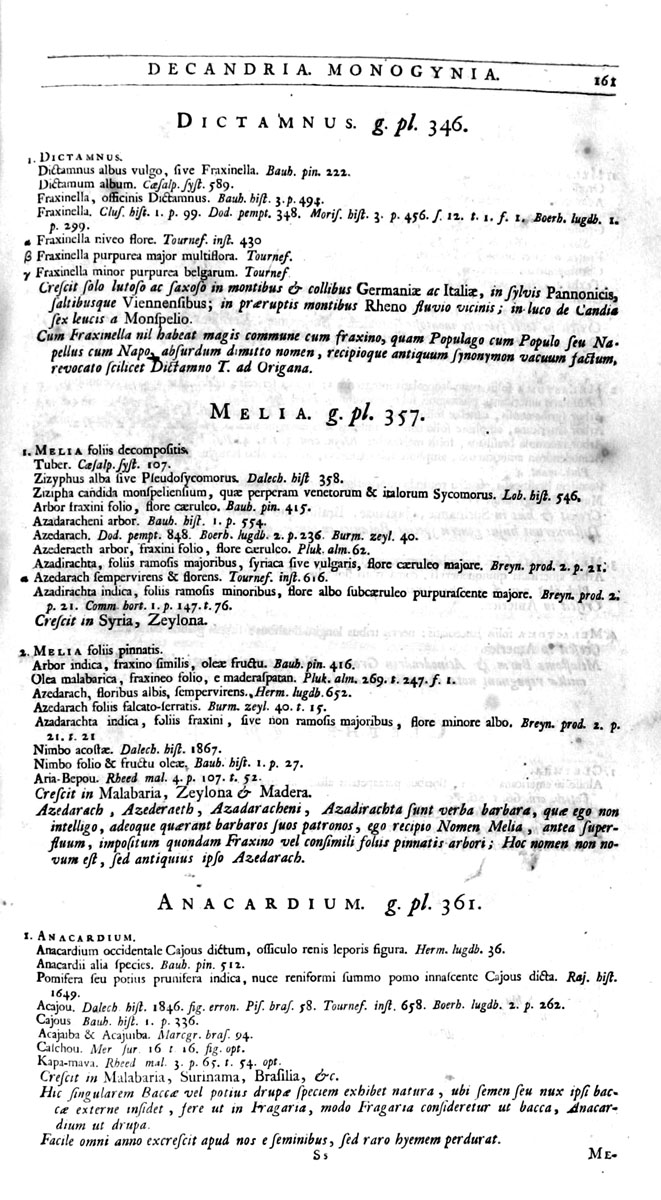 DECANDRIA. MONOGYNIA.
161
DICTAMNUS. g. pl. 346.
1. DICTAMNUS.
Dictamnus albus vulgo, ſive Fraxinella. Bauh. pin. 222.
Dictamum album. Cæſalp. ſyſt. 589.
Fraxinella, officinis Dictamnus. Bauh. hiſt. 3. p. 494.
Fraxinella. Cluſ. hiſt. 1. p. 99. Dod. pempt. 348. Moriſ. hiſt. 3. p. 456. ſ. 12. t. 1. f. 1. Boerh. lugdb. 1.
p. 299.
α Fraxinella niveo flore. Tournef. inſt. 430
β Fraxinella purpurea major multiflora. Tournef.
γ Fraxinella minor purpurea belgarum. Tournef
Creſcit ſolo lutoſo ac ſaxoſo in montibus & collibus Germaniæ ac Italiæ, in ſylvis Pannonicis,
ſaltibusque Viennenſibus; in præruptis montibus Rheno fluvio vicinis; in luco de Candia
ſex leucis a Monſpelio.
Cum Fraxinella nil habeat magis commune cum fraxino, quam Populago cum Populo ſeu Na-
pellus cum Napo, abſurdum dimitto nomen, recipioque antiquum ſynonymon vacuum factum,
revocato ſcilicet Dictamno T. ad Origana.
MELIA. g. pl. 357.
1. MELIA foliis decompoſitis.
Tuber. Cæſalp. ſyſt. 107.
Zizyphus alba ſive Pſeudoſycomorus. Dalech. hiſt 358.
Zizipha candida monſpelienſium, quæ perperam venetorum & italorum Sycomorus. Lob. hiſt. 546.
Arbor fraxini folio, flore cæruleo. Bauh. pin. 415.
Azadaracheni arbor. Bauh. hiſt. 1. p. 554.
Azedarach. Dod. pempt. 848. Boerh. lugdb. 2. p. 236. Burm. zeyl. 40.
Azederaeth arbor, fraxini folio, flore cæruleo. Pluk. alm. 62.
Azadirachta, foliis ramoſis majoribus, ſyriaca ſive vulgaris, flore cæruleo majore. Breyn. prod. 2. p. 21.
α Azedarach ſempervirens & florens. Tournef. inſt. 616.
Azadirachta indica, foliis ramoſis minoribus, flore albo ſubcæruleo purpuraſcente majore. Breyn. prod. 2.
p. 21. Comm. hort. 1. p. 147. t. 76.
Creſcit in Syria, Zeylona.
2. MELIA foliis pinnatis.
Arbor indica, fraxino ſimilis, oleæ fructu. Bauh. pin. 416.
Olea malabarica, fraxineo folio, e maderaſpatan. Pluk. alm. 269. t. 247. f. 1.
Azedarach, floribus albis, ſempervirens. Herm. lugdb. 652.
Azedarach foliis falcato-ſerratis. Burm. zeyl. 40. t. 15.
Azadarachta indica, foliis fraxini, ſive non ramoſis majoribus, flore minore albo. Breyn. prod. 2. p.
21. t. 21
Nimbo acoſtæ. Dalech. hiſt. 1867.
Nimbo folio & fructu oleæ. Bauh. hiſt. 1. p. 27.
Aria-Bepou. Rheed mal. 4. p. 107. t. 52.
Creſcit in Malabaria, Zeylona & Madera.
Azedarach, Azederaeth, Azadaracheni, Azadirachta ſunt verba barbara, quæ ego non
intelligo, adeoque quærant barbaros ſuos patronos, ego recipio Nomen Melia, antea ſuper-
fluum, impoſitum quondam Fraxino vel conſimili foliis pinnatis arbori; Hoc nomen non no-
vum eſt, ſed antiquius ipſo Azedarach.
ANACARDIUM. g. pl. 361.
1. ANACARDIUM.
Anacardium occidentale Cajous dictum, officulo renis leporis figura. Herm. lugdb. 36.
Anacardii alia ſpecies. Bauh. pin. 512.
Pomifera ſeu potius prunifera indica, nuce reniformi ſummo pomo innaſcente Cajous dicta. Raj. hiſt.
1649.
Acajou. Dalech hiſt. 1846. fig. erron. Piſ. braſ. 58. Tournef. inſt. 658. Boerh. lugdb. 2. p. 262.
Cajous Bauh. hiſt. 1. p. 336.
Acajaiba & Acajuiba. Marcgr. braſ. 94.
Catchou. Mer ſur. 16 t. 16. fig. opt.
Kapa-mava. Rheed mal. 3. p. 65. t. 54. opt.
Creſcit in Malabaria, Surinama, Braſilia, &c.
Hic ſingularem Baccæ vel potius drupæ ſpeciem exhibet natura, ubi ſemen ſeu nux ipſi bac-
cæ externe inſidet, fere ut in Fragaria, modo Fragaria conſideretur ut bacca, Anacar-
dium ut drupa.
Facile omni anno excreſcit apud nos e ſeminibus, ſed raro hyemem perdurat.
Ss
ME-